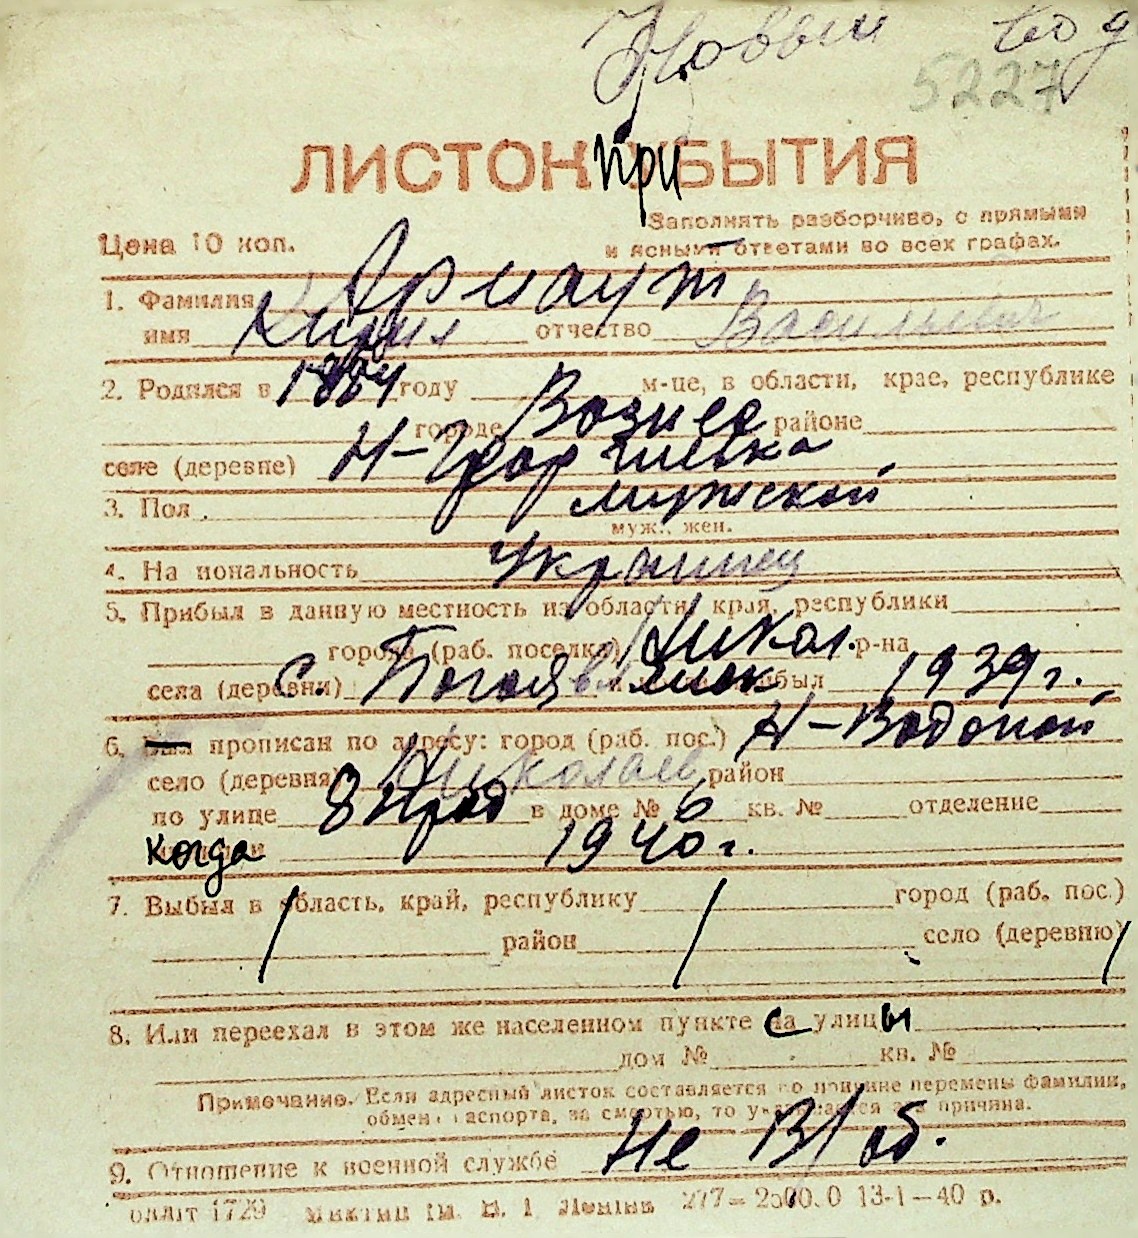 Новый вод
5227
ЛИСТОК при БЫТИЯ
Заполнять разборчиво, с прямыми
Цена 10 коп.
и ясными ответами во всех графах.
1. Фамилия Арнаут
имя Кирил отчество Васильевич
2. Родился в году м-це, в области, крае, республике
городе Вознес районе
селе (деревне)
3. Пол мужской
муж., жен.
4. Национальность Украинец
5. Прибыл в данную местность из области, края, республики
города (раб. поселка) Никол. р-на
села (деревни) с. Богоявленск прибыл 1939 г.
6. прописан по адресу: город (раб. пос.) Н-Водопой
село (деревня) Николаев район
по улице 8 Прод в доме № 6 кв. № отделение
когда 1940 г.
7. Выбыл в область, край, республику город (раб. пос.)
район село (деревню)
8. Или переехал в этом же населенном пункте с улицы
дом № кв. №
Примечание. Если адресный листок составляется по причине перемены фамилии,
обмена паспорта, за смертью, то указывается эта причина.
9. Отношение к военной службе Не в/об.
1729 им. В. І. Леніна 277— 13-1—40 р.